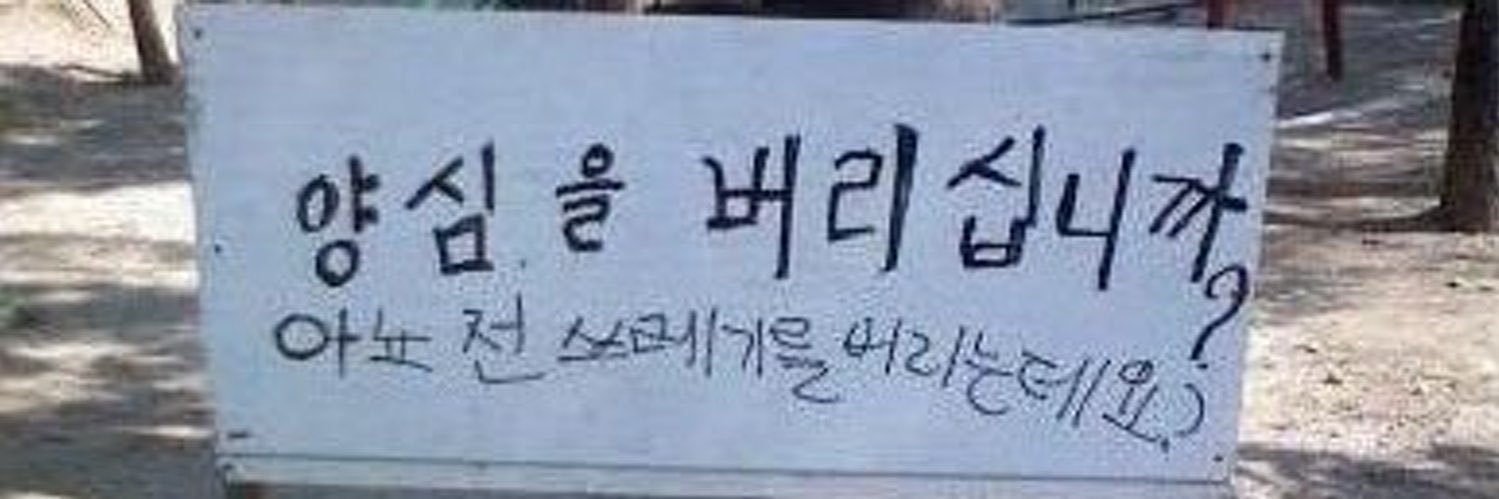 양심을 버리십니까?
아뇨 전 쓰레기를 버리는데요?